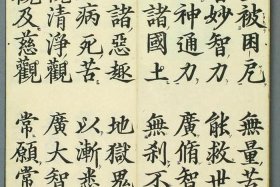 被困厄 無量苦
妙智力 能救世
神通力 廣脩智
諸國土 無刹不
諸惡趣 地獄鬼
病死苦 以漸悉
清淨觀 廣大智
及慈觀 常願常